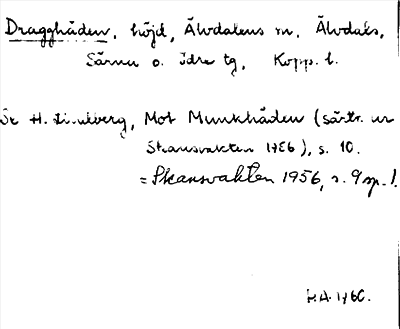 Dragghåden, höjd, Älvdalens sn, Älvdals,
Särna o. Idre tg, Kopp. l.
Se H. Lindberg, Mot Munkhåden (särtr. ur
Skansvakten 1956), s. 10.
= Skansvakten 1956, s. 9 sp. 1.
1960.